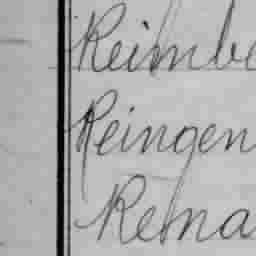 Reimbe
Reingen
Rema